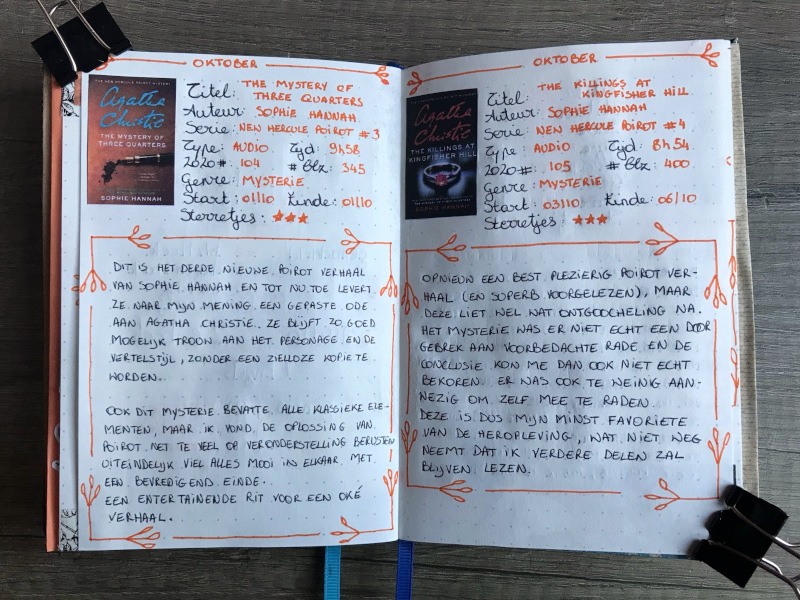 OKTOBER
THE NEW HERCULE POIROT MYSTERY
Agatha
Christie
THE MYSTERY OF
THREE QUARTERS
SOPHIE HANNAH
Titel: THE MYSTERY OF
THREE QUARTERS
Auteur: SOPHIE HANNAH
Serie: NEW HERCULE POIROT #3
Type: AUDIO Tijd: 9h58
2020#: 104 # Blz: 345
Genre: MYSTERIE
Start: 01/10 Einde: 01/10
Sterretjes: ★★★
DIT IS HET DERDE NIEUWE POIROT VERHAAL
VAN SOPHIE HANNAH EN TOT NU TOE LEVERT
ZE NAAR MIJN MENING EEN GEPASTE ODE
AAN AGATHA CHRISTIE. ZE BLIJFT ZO GOED
MOGELIJK TROUW AAN HET PERSONAGE EN DE
VERTELSTIJL, ZONDER EEN ZIELLOZE KOPIE TE
WORDEN.
OOK DIT MYSTERIE BEVATTE ALLE KLASSIEKE ELE-
MENTEN, MAAR IK VOND DE OPLOSSING VAN
POIROT NET TE VEEL OP VERONDERSTELLING BERUSTEN
UITEINDELIJK VIEL ALLES MOOI IN ELKAAR MET
EEN BEVREDIGEND EINDE.
EEN ENTERTAINENDE RIT VOOR EEN OKÉ
VERHAAL.
OKTOBER
Agatha
Christie
THE KILLINGS AT
KINGFISHER HILL
THE NEW HERCULE POIROT MYSTERY
SOPHIE HANNAH
Titel: THE KILLINGS AT
KINGFISHER HILL
Auteur: SOPHIE HANNAH
Serie: NEW HERCULE POIROT #4
Type: AUDIO Tijd: 8h54
2020#: 105 # Blz: 400
Genre: MYSTERIE
Start: 03/10 Einde: 06/10
Sterretjes: ★★★
OPNIEUW EEN BEST PLEZIERIG POIROT VER-
HAAL (EN SUPERB VOORGELEZEN), MAAR
DEZE LIET WEL WAT ONTGOOCHELING NA.
HET MYSTERIE WAS ER NIET ECHT EEN DOOR
GEBREK AAN VOORBEDACHTE RADE EN DE
CONCLUSIE KON ME DAN OOK NIET ECHT
BEKOREN. ER WAS OOK TE WEINIG AAN-
WEZIG OM ZELF MEE TE RADEN.
DEZE IS DUS MIJN MINST FAVORIETE
VAN DE HEROPLEVING, WAT NIET WEG
NEEMT DAT IK VERDERE DELEN ZAL
BLIJVEN LEZEN.